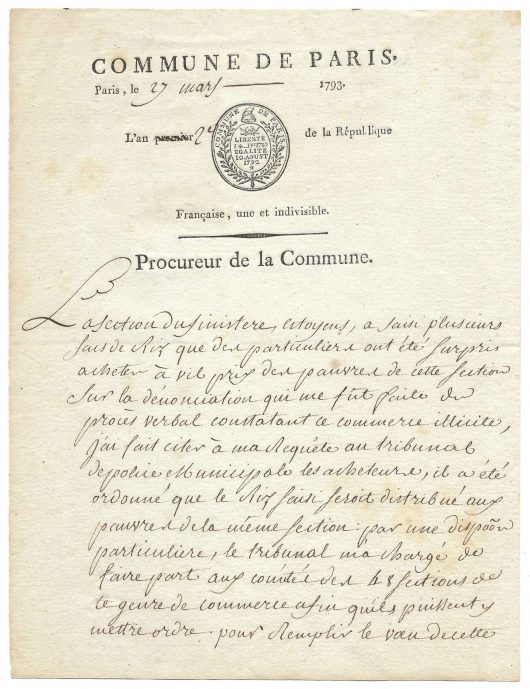 COMMUNE DE PARIS.
Paris, le 27 mars 1793.
L'an premier 2e de la République
COMMUNE DE PARIS
LIBERTÉ
14 JLET 1789
EGALITÉ
10 AOUST
1792
Française, une et indivisible.
Procureur de la Commune.
La section du finistere, citoyens, a saisi plusieurs
sacs de Riz que des particuliers ont été surpris
acheter à vil prix des pauvres de cette section
Sur la dénonciation qui me fut faite du
procès verbal constatant ce commerce illicite,
j'ai fait citer à ma Requête au tribunal
de police Municipale les acheteurs, il a été
ordonné que le Riz saisi seroit distribué aux
pauvres de la même section: par une dispoõn
particuliere, le tribunal m'a chargé de
faire part aux comités des 48 sections de
ce genre de commerce afin qu'ils puissent y
mettre ordre. pour Remplir le vœu de cette